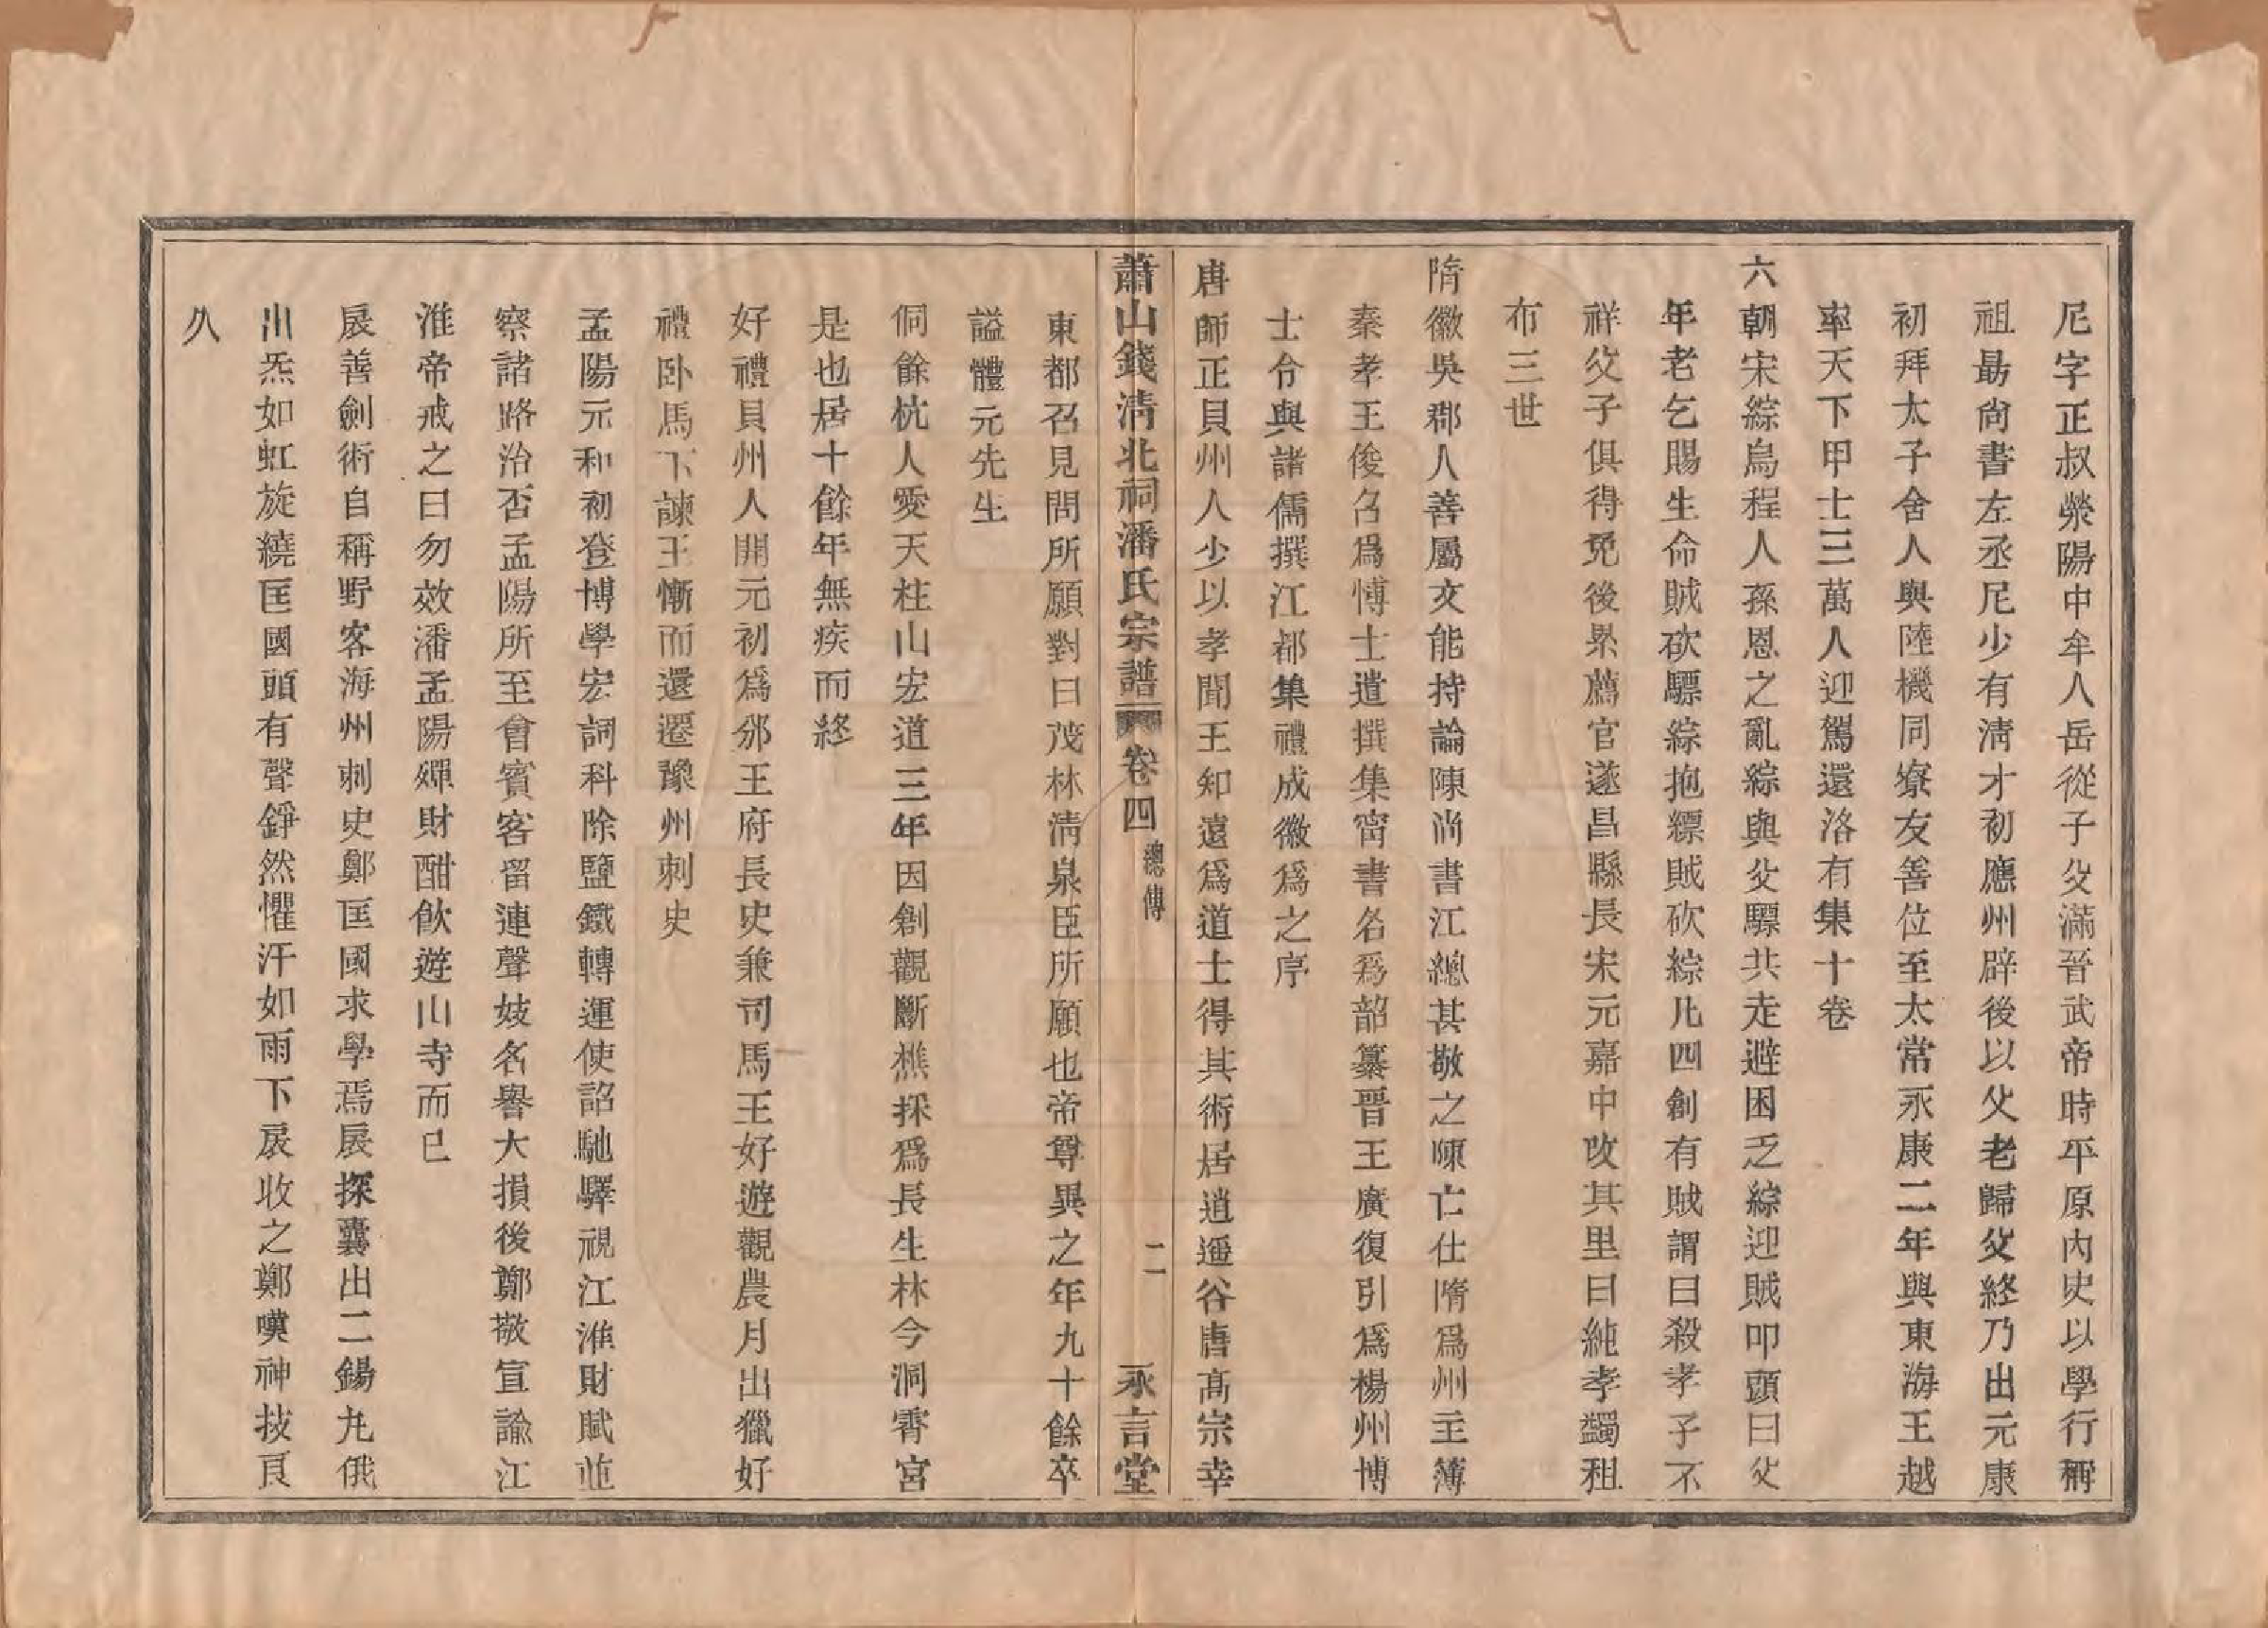 尼字正叔滎陽中牟人岳從子父滿晉武帝時平原內史以學行稱
祖勗尙書左丞尼少有淸才初應州辟後以父老歸父終乃出元康
初拜太子舍人與陸機同寮友善位至太常永康二年與東海王越
率天下甲士三萬人迎駕還洛有集十卷
六朝宋綜烏程人孫恩之亂綜與父驃共走避困乏綜迎賊叩頭曰父
年老乞賜生命賊砍驃綜抱縹賊砍綜凡四創有賊謂曰殺孝子不
祥父子俱得免後累薦官遂昌縣長宋元嘉中改其里曰純孝蠲租
布三世
隋徽吳郡人善屬文能持論陳尚書江總甚敬之陳亡仕隋爲州主簿
秦孝王俊召爲愽士遣撰集寄書名爲韶纂晋王廣復引爲楊州博
士令與諸儒撰江都集禮成徽爲之序
唐師正貝州人少以孝聞王知遠爲道士得其術居逍遥谷唐高宗幸
蕭山錢淸北祠潘氏宗譜 卷四 總傳 二 永言堂
東都召見問所願對曰茂林淸泉臣所願也帝尊異之年九十餘卒
謚體元先生
侗餘杭人愛天柱山宏道三年因創觀斷樵採爲長生林今洞霄宮
是也居十餘年無疾而終
好禮貝州人開元初爲邠王府長史兼司馬王好遊觀農月出獵好
禮卧馬下諫王慚而還遷豫州刺史
孟陽元和初登博學宏詞科除鹽鐵轉運使詔馳驛視江淮財賦並
察諸路治否孟陽所至會賓客留連聲妓名譽大損後鄭敬宣諭江
淮帝戒之曰勿效潘孟陽殫財酣飲遊山寺而已
扆善劍術自稱野客海州刺史鄭匡國求學焉扆探囊出二錫丸俄
出炁如虹旋繞匡國頭有聲錚然懼汗如雨下扆收之鄭嘆神技良
久